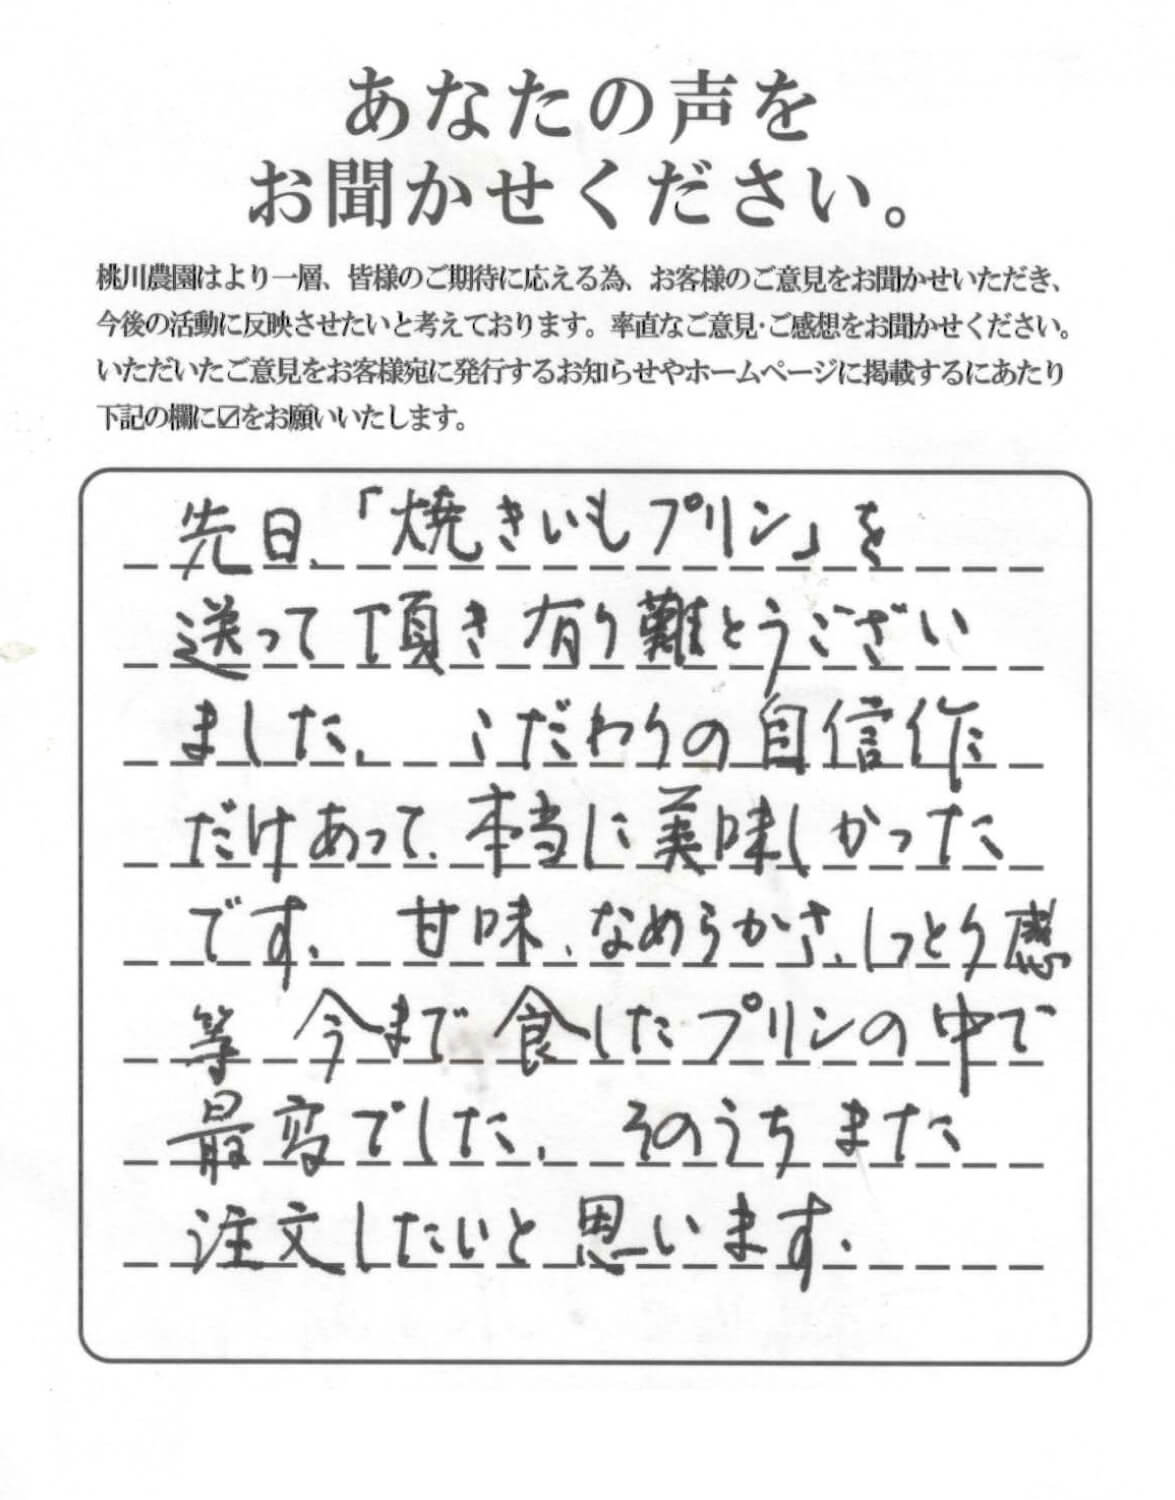 あなたの声を
お聞かせください。
桃川農園はより一層、皆様のご期待に応える為、お客様のご意見をお聞かせいただき、
今後の活動に反映させたいと考えております。率直なご意見・ご感想をお聞かせください。
いただいたご意見をお客様宛に発行するお知らせやホームページに掲載するにあたり
下記の欄に☑をお願いいたします。
先日、「焼きいもプリン」を
送って頂き有り難とうござい
ました。 こだわりの自信作
だけあって、本当に美味しかった
です。 甘味、なめらかさ、しっとり感
等 今まで食したプリンの中で
最高でした。 そのうちまた
注文したいと思います。